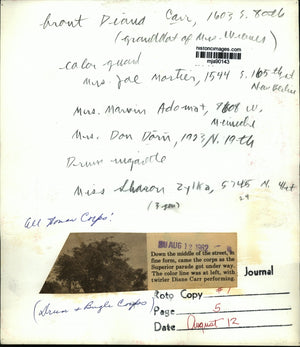 front Diana Carr, 1603 S. 80th
(granddaut of Mrs.
historicimages.com
mja90143
color guard
Mrs. Joe Mortier, 1544 S. 165th rd
New Berlin
Mrs. Marvin 9808 W.
Mrs. Don 1923 N. 19th
Drum majorette
Miss Sharon Zylka, 5745 N. 41st
All Women Corps!
AUG 12 1962
Down the middle of the street, in
fine form, came the corps as the
Superior parade got under way.
The color line was at left, with
twirler Diane Carr performing.
(Drum & Bugle Corps)
Journal
Roto Copy #1
Page 5
Date August 12